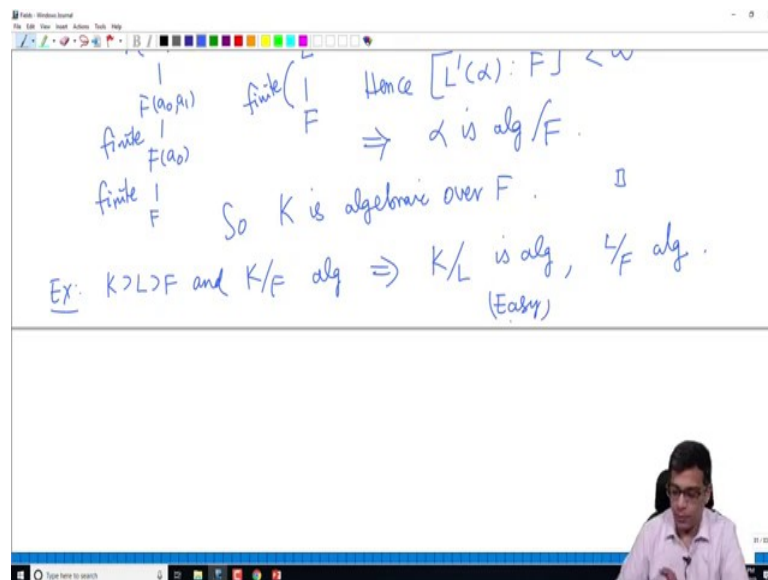 Fields - Windows Journal
File Edit View Insert Actions Tools Help
F(a₀,a₁)
finite
F(a₀)
finite
F
L
finite (
F
Hence [L'(α) : F] < ∞
⇒ α is alg/F.
So K is algebraic over F. □
Ex: K⊃L⊃F and K/F alg ⇒ K/L is alg, L/F alg.
(Easy)
Type here to search